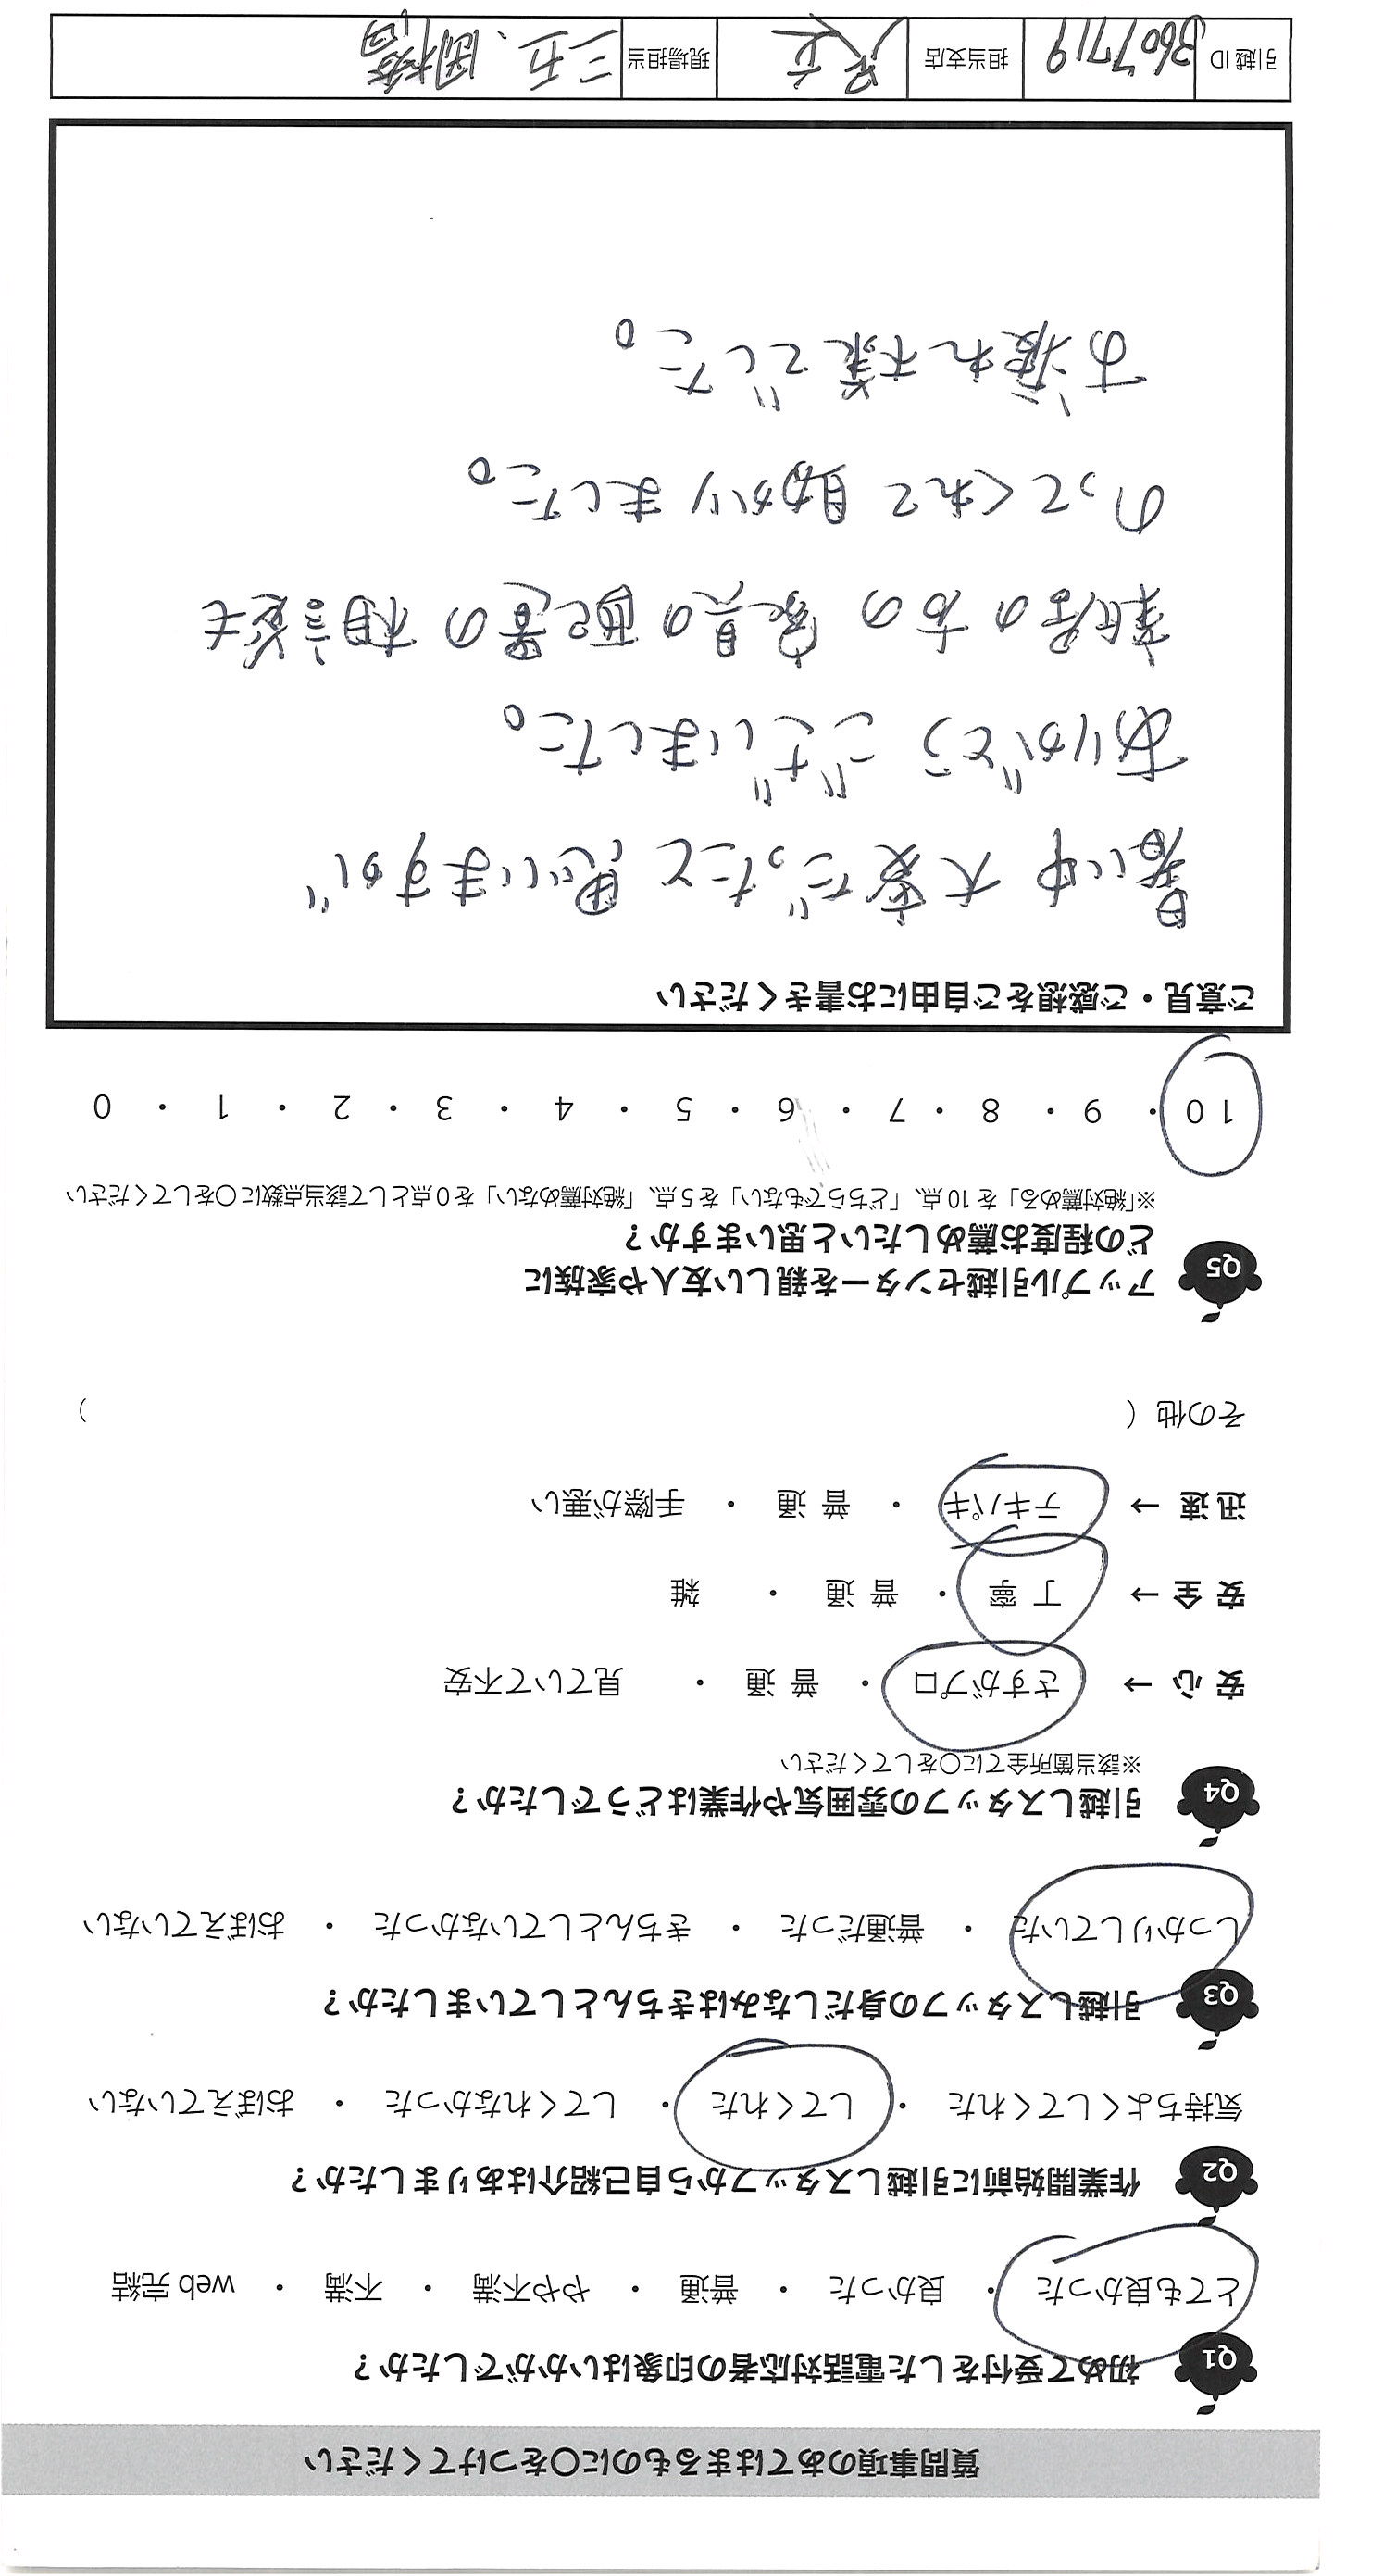 質問事項のあてはまるものに○をつけてください
Q1 初めて受付をした電話対応者の印象はいかがでしたか？
とても良かった ・ 良かった ・ 普通 ・ やや不満 ・ 不満 ・ web 完結
Q2 作業開始前に引越しスタッフから自己紹介はありましたか？
気持ちよくしてくれた ・ してくれた ・ してくれなかった ・ おぼえていない
Q3 引越しスタッフの身だしなみはきちんとしていましたか？
しっかりしていた ・ 普通だった ・ きちんとしていなかった ・ おぼえていない
Q4 引越しスタッフの雰囲気や作業はどうでしたか？
※該当箇所全てに○をしてください
安 心 → さすがプロ ・ 普 通 ・ 見ていて不安
安 全 → 丁 寧 ・ 普 通 ・ 雑
迅 速 → テキパキ ・ 普 通 ・ 手際が悪い
その他（ ）
Q5 アップル引越センターを親しい友人や家族に
どの程度お薦めしたいと思いますか？
※「絶対薦める」を 10 点、「どちらでもない」を 5 点、「絶対薦めない」を 0 点として該当点数に○をしてください
1 0 ・ 9 ・ 8 ・ 7 ・ 6 ・ 5 ・ 4 ・ 3 ・ 2 ・ 1 ・ 0
ご意見・ご感想をご自由にお書きください
暑い中 大変だったと思いますが
ありがとうございました。
新居の方の家具の配置の相談も
のってくれて助かりました。
お疲れ様でした。
引越 ID 3607719 担当支店 足立 現場担当 三五、